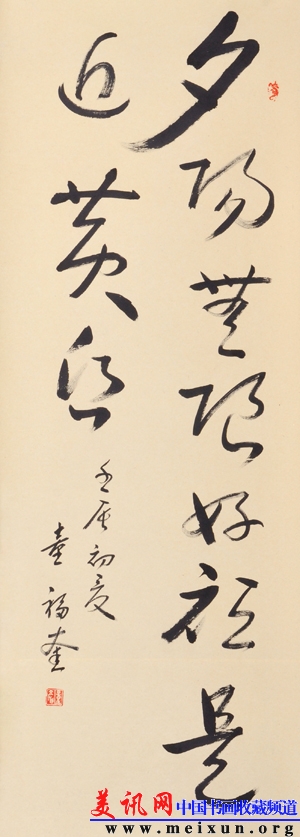 夕陽無限好祇是
近黄昏
壬辰初夏
童福奎
美讯网 中国书画收藏频道
www.meixun.org